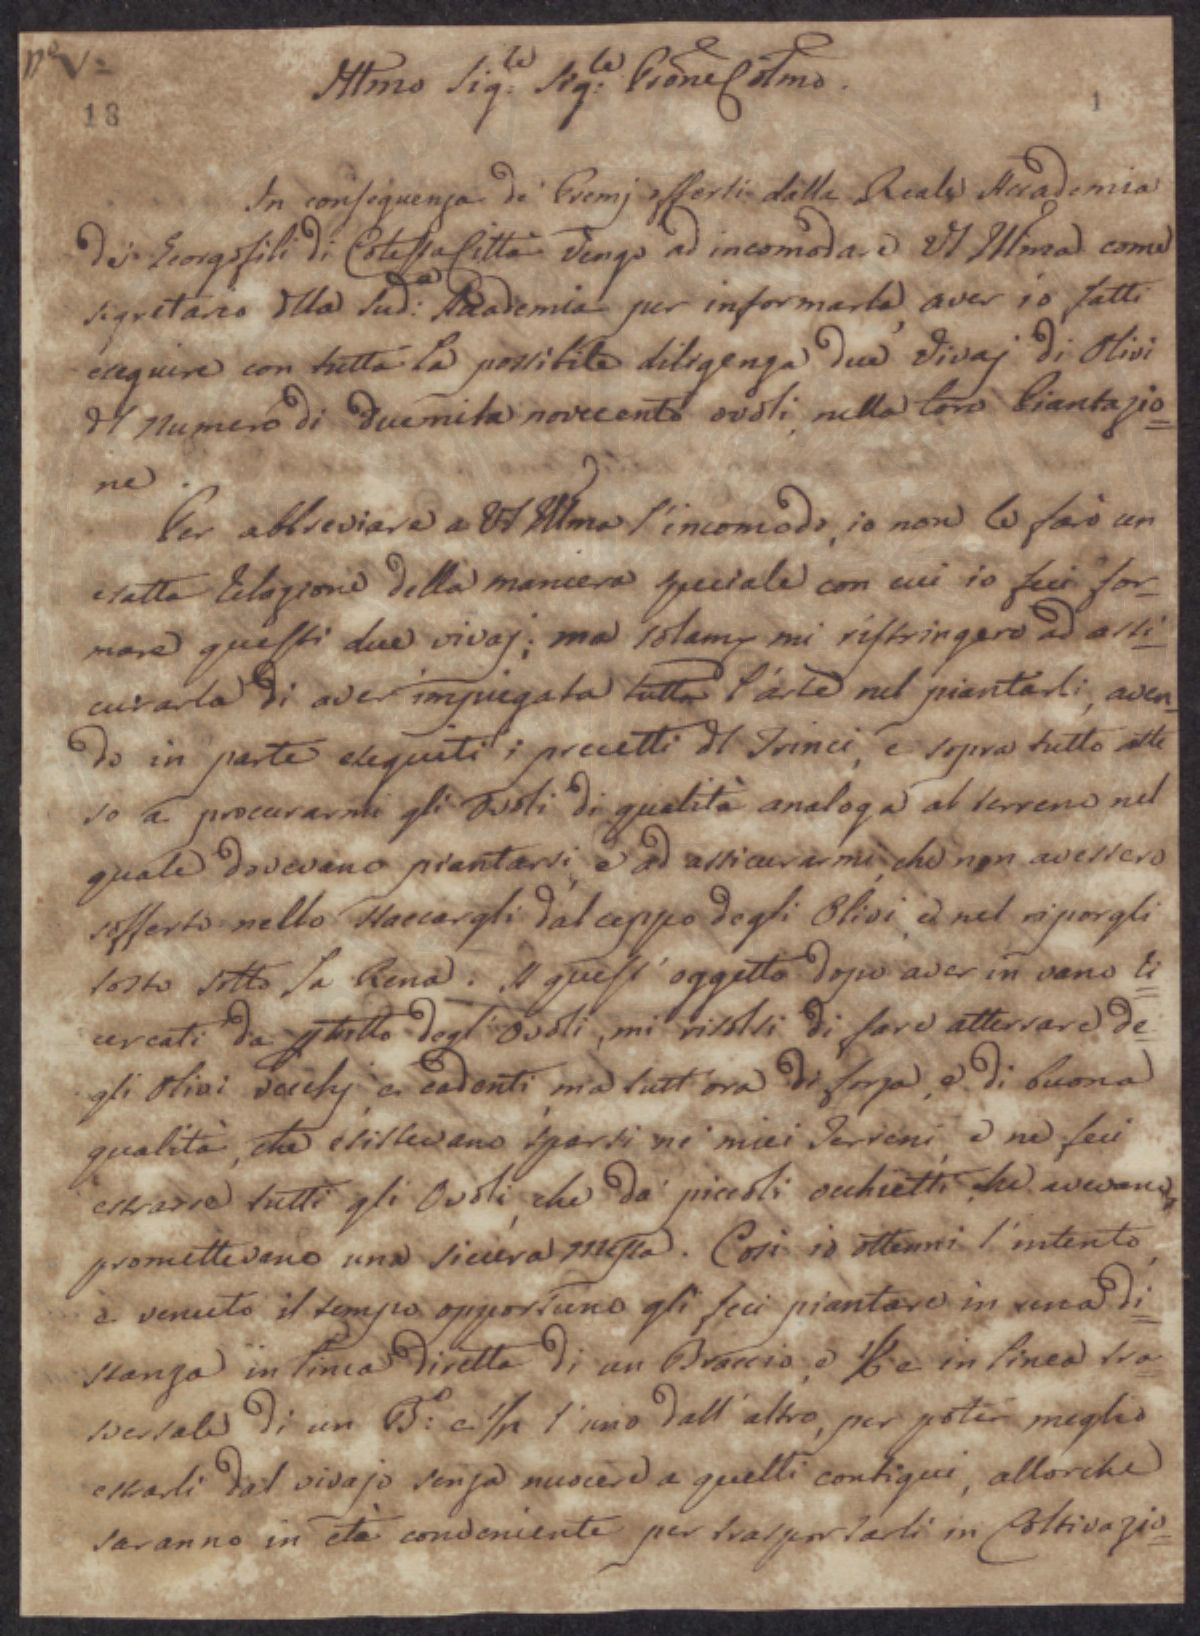 N.º V.
18
1
Illmo Sig.re Sig.re Prone Colmo.
In conseguenza de' Premj offerti dalla Reale Accademia
de' Georgofili di Cotesta Città vengo ad incomodare VS Illma come
segretario dlla Sud.a Accademia per informarla aver io fatti
eseguire con tutta la possibile diligenza due Vivaj di Olivi
dl numero di duemila novecento ovoli nella loro Piantazio=
ne.
Per abbreviare a VS Illma l'incomodo, io non le farò un
esatta relazione della maniera speciale con cui io feci for=
mare questi due vivaj; ma solamte mi ristringerò ad assi=
curarla di aver impiegata tutta l'arte nel piantarli, aven=
do in parte eseguiti i precetti dl Trinci, e sopra tutto atte
so a procurarmi gli Ovoli di qualità analoga al terreno nel
quale dovevano piantarsi, e ad assicurarmi che non avessero
sofferto nello staccargli dal ceppo degli Olivi, e nel riporgli
tosto sotto la Rena. A quest' oggetto dopo aver in vano ri=
cercati da ptutto degl'Ovoli, mi risolsi di fare atterrare de=
gli Olivi vecchj e cadenti, ma tutt'ora di forza, e di buona
qualità, che esistevano sparsi ne' miei Terreni, e ne feci
estrarre tutti gli Ovoli, che da' piccoli occhietti che avevano,
promettevano una sicura Messa. Così io ottenni l'intento,
e venuto il tempo opportuno gli feci piantare in una di=
stanza in linea diretta di un Braccio, e 1/2 e in linea tra=
sversale di un B.o e 1/2 l'uno dall'altro, per poter meglio
estrarli dal vivajo senza nuocere a quelli contigui, allorche
saranno in età conveniente per trasportarli in Coltivazio=